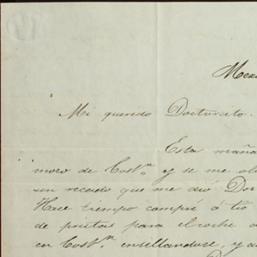 Mi querido Doctorcito.
Esta maña
moro de Cost.ª y se me ol
un recado que me dió Do
Hace tiempo compré á tio
de prietas para el coche
con Cost.ª ensillandose, y